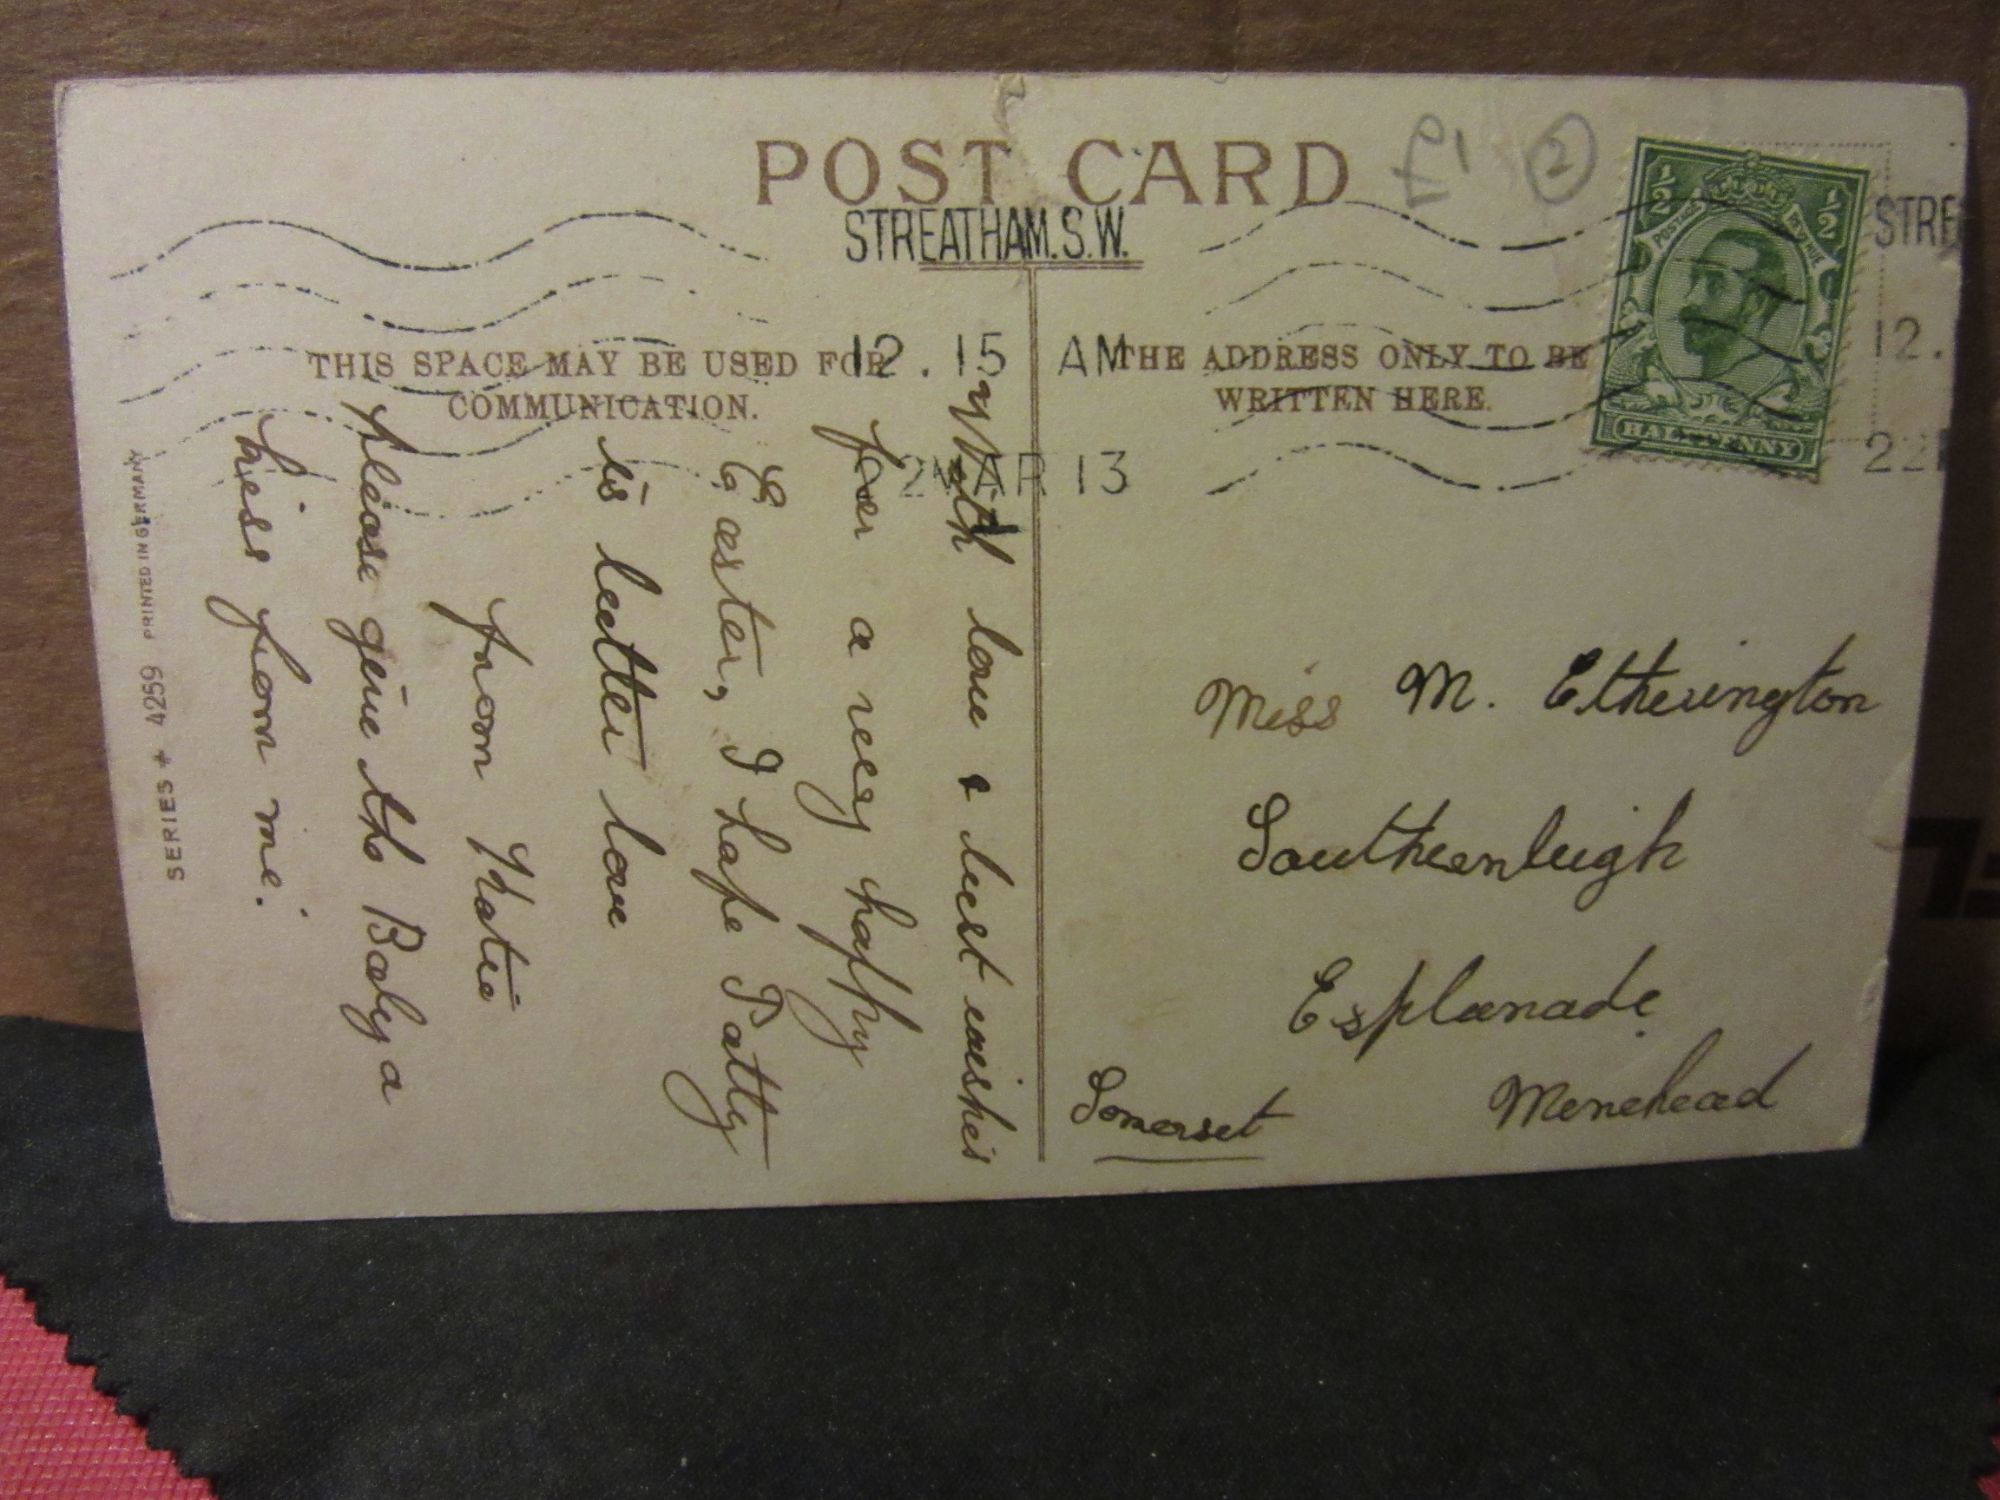 POST CARD
£1 2
STREATHAM.S.W.
12.15 AM
22 MAR 13
STRE
12.
22
½ ½
POSTAGE REVENUE
HALFPENNY
THIS SPACE MAY BE USED FOR
COMMUNICATION.
THE ADDRESS ONLY TO BE
WRITTEN HERE.
With love & best wishes
for a very happy
Easter, I hope Patty
is better love
from Katie
please give the Baby a
kiss from me.
Miss M. Etherington
Southernleigh
Esplanade
Minehead
Somerset
SERIES 4259 PRINTED IN GERMANY